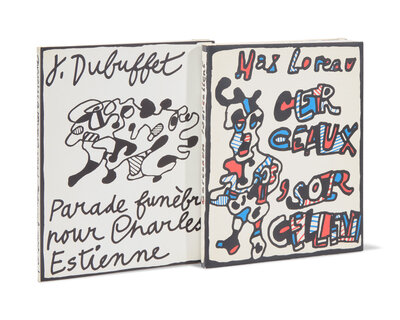 J. Dubuffet
Parade funèbr
pour Charles
Estienne
Max Loreau
CER
CEAUX
'SOR
CELLENT